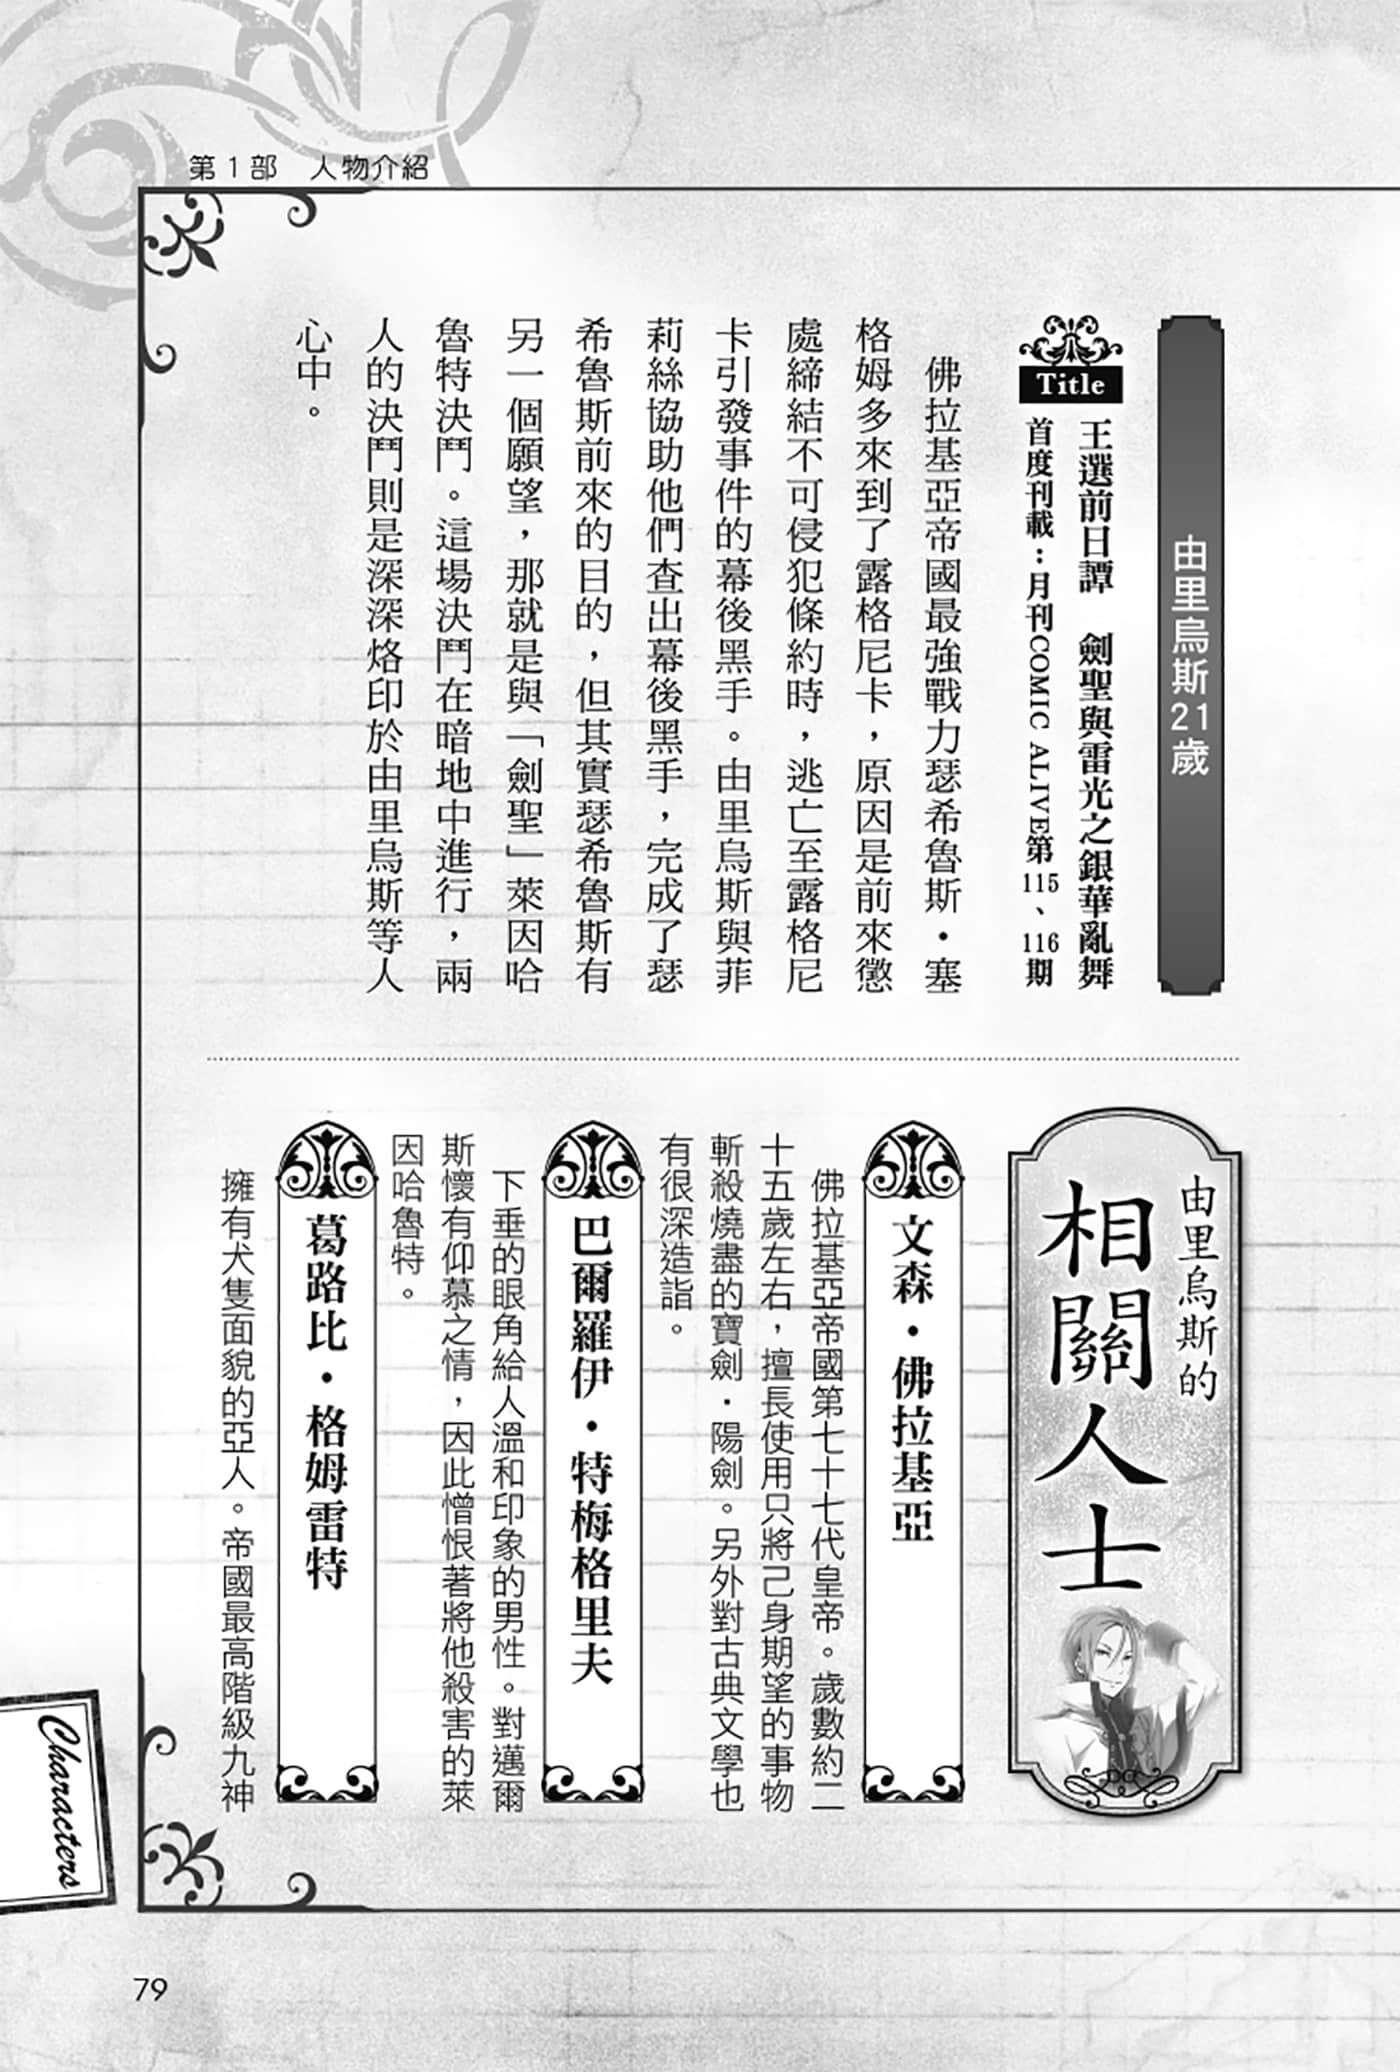 第1部　人物介紹
由里烏斯21歲
Title
王選前日譚　劍聖與雷光之銀華亂舞
首度刊載：月刊COMIC ALIVE第115、116期
佛拉基亞帝國最強戰力瑟希魯斯・塞
格姆多來到了露格尼卡，原因是前來懲
處締結不可侵犯條約時，逃亡至露格尼
卡引發事件的幕後黑手。由里烏斯與菲
莉絲協助他們查出幕後黑手，完成了瑟
希魯斯前來的目的，但其實瑟希魯斯有
另一個願望，那就是與「劍聖」萊因哈
魯特決鬥。這場決鬥在暗地中進行，兩
人的決鬥則是深深烙印於由里烏斯等人
心中。
由里烏斯的
相關人士
文森・佛拉基亞
佛拉基亞帝國第七十七代皇帝。歲數約二
十五歲左右，擅長使用只將己身期望的事物
斬殺燒盡的寶劍・陽劍。另外對古典文學也
有很深造詣。
巴爾羅伊・特梅格里夫
下垂的眼角給人溫和印象的男性。對邁爾
斯懷有仰慕之情，因此憎恨著將他殺害的萊
因哈魯特。
葛路比・格姆雷特
擁有犬隻面貌的亞人。帝國最高階級九神
Characters
79